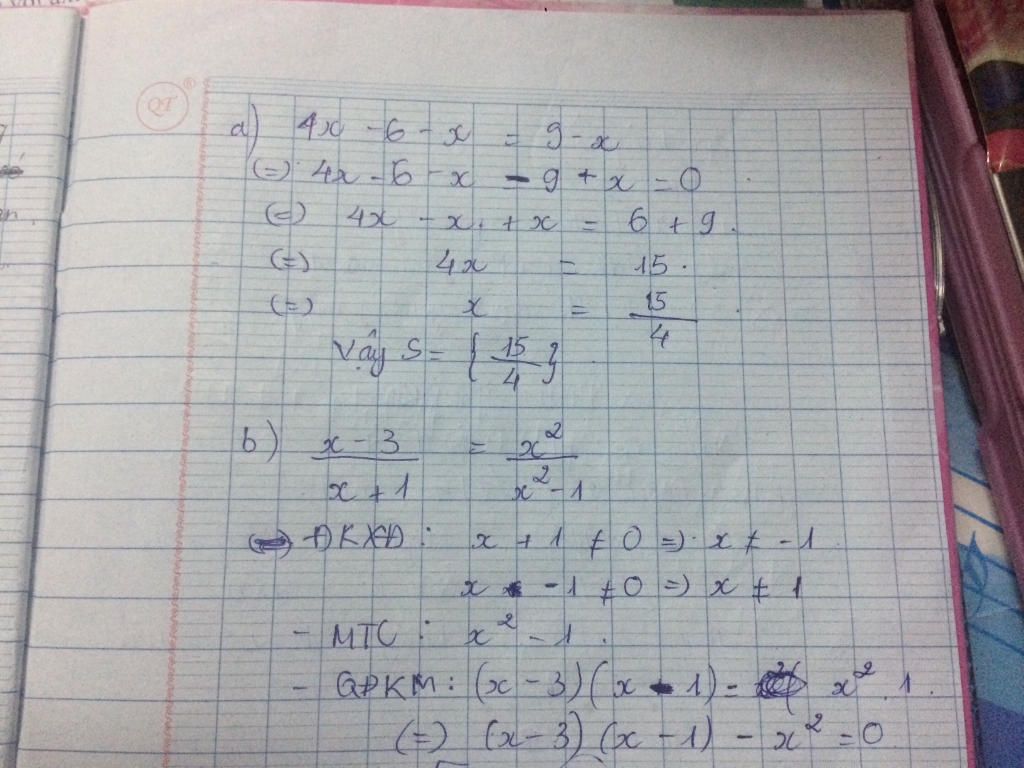 QT ®
a) 4x - 6 - x = 9 - x
(=) 4x - 6 - x - 9 + x = 0
(=) 4x - x + x = 6 + 9.
(=) 4x = 15.
(=) x = 15/4
Vậy S = { 15/4 }
b) (x - 3)/(x + 1) = x²/(x² - 1)
ĐKXĐ : x + 1 ≠ 0 => x ≠ -1
x - 1 ≠ 0 => x ≠ 1
- MTC : x² - 1.
- QĐKM : (x - 3)(x - 1) = x². 1.
(=) (x - 3)(x - 1) - x² = 0